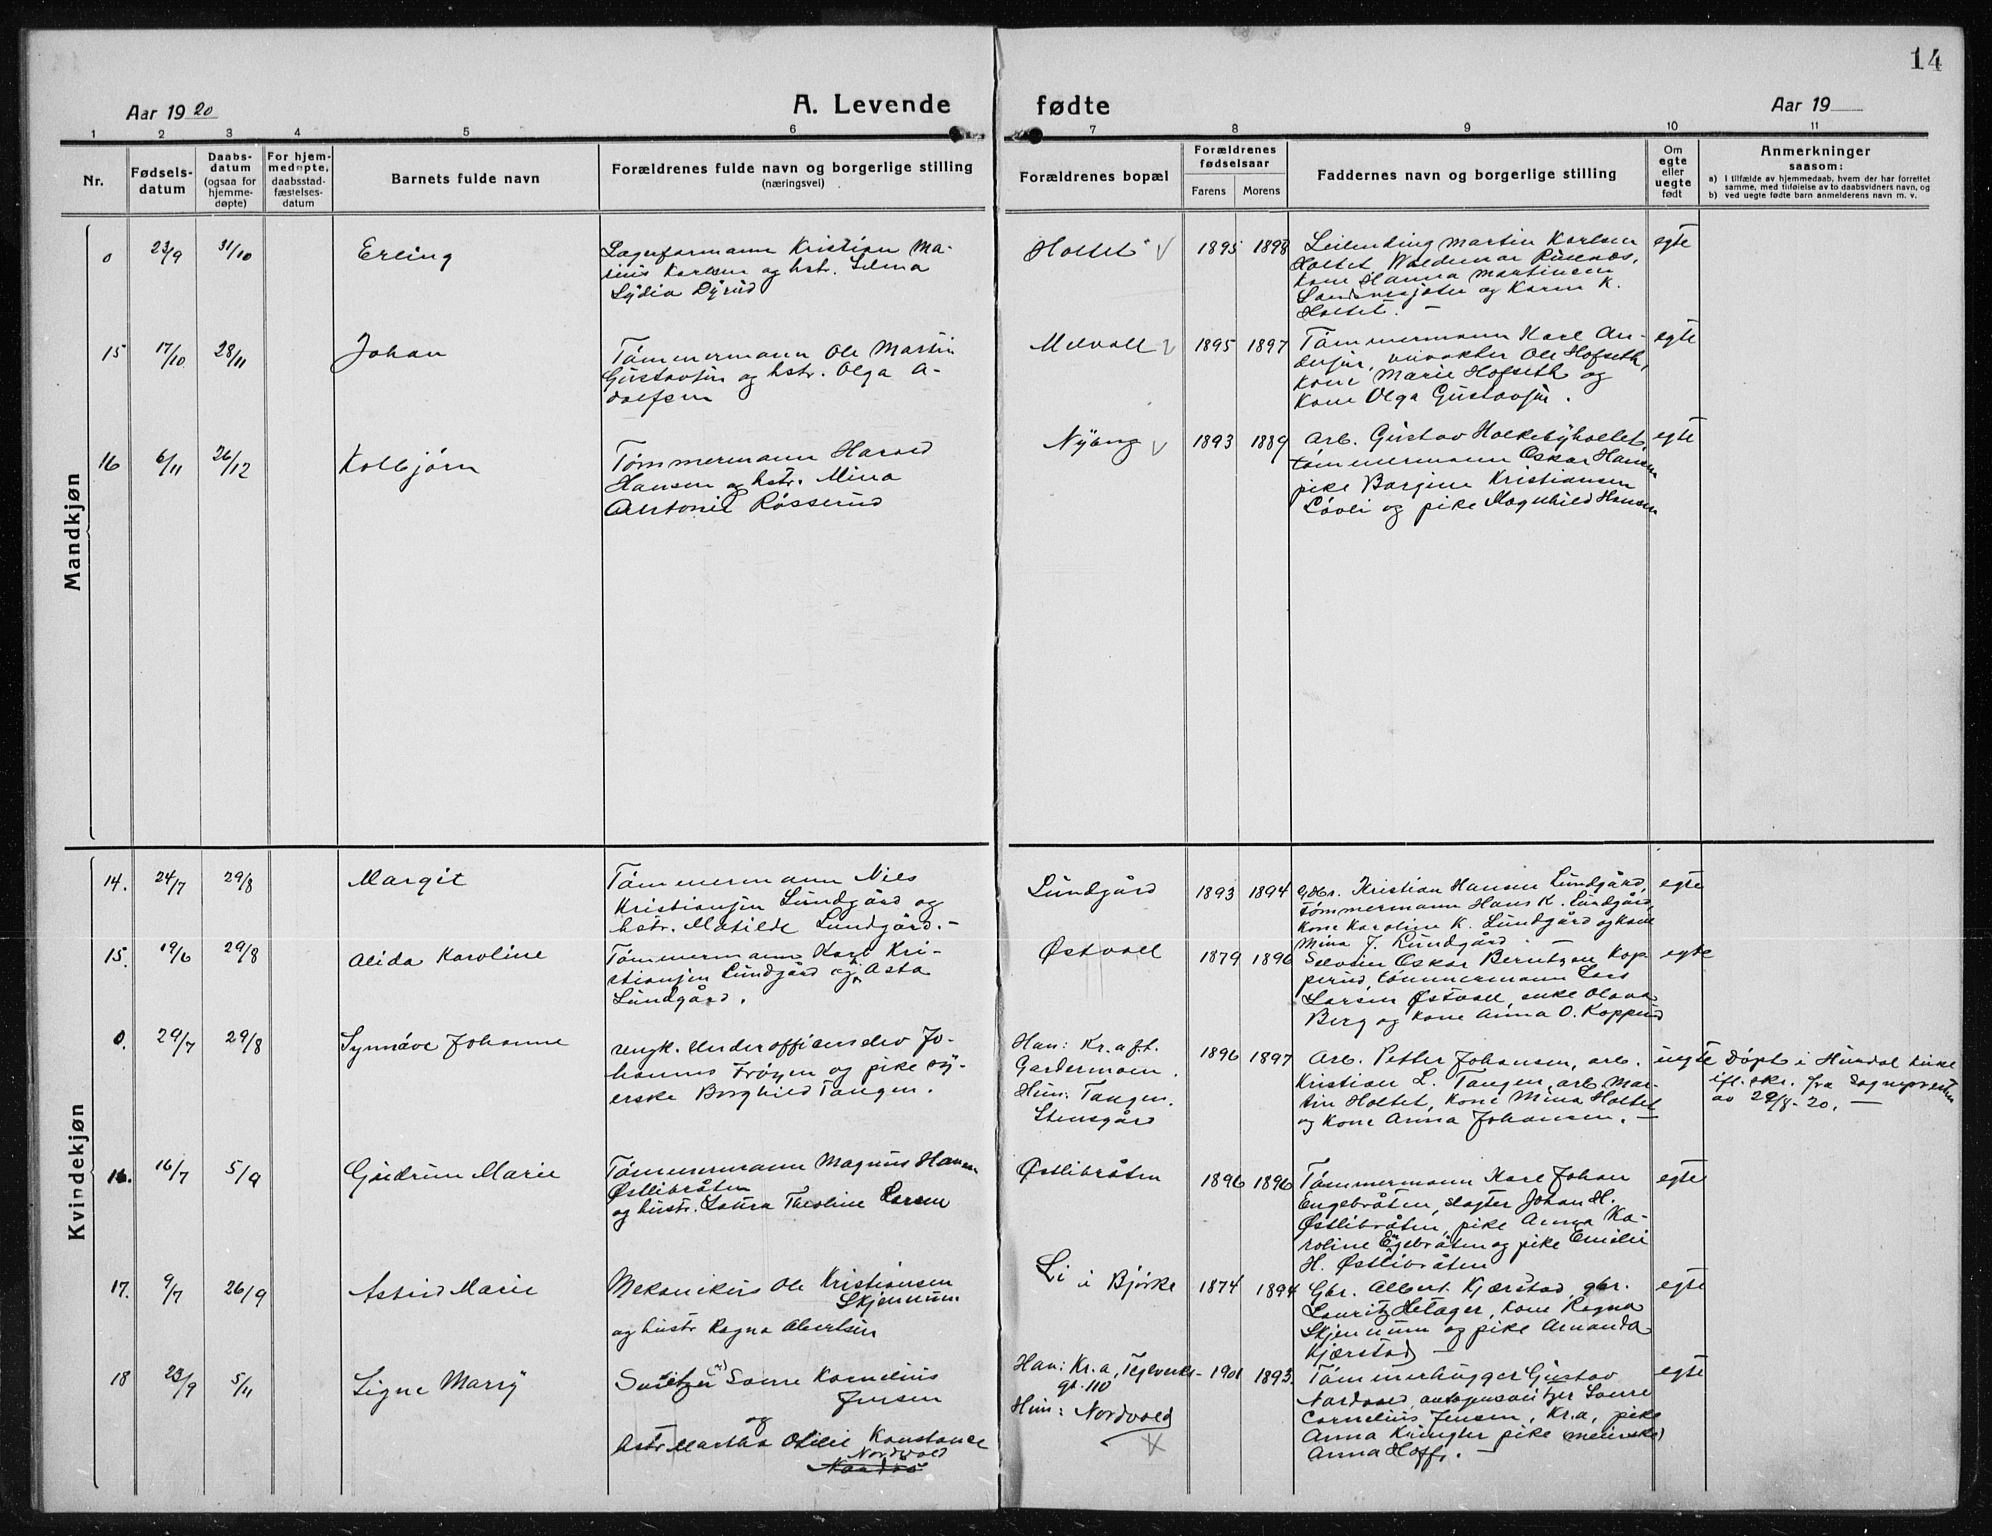 14
Aar 1920
A. Levende
fødte
Aar 19
1 2 3 4 5 6 7 8 9 10 11
Nr.
Fødsels-
datum
Daabs-
datum
(ogsaa for
hjemme-
døpte)
For hjem-
medøpte,
daabsstad-
fæstelses-
datum
Barnets fulde navn
Forældrenes fulde navn og borgerlige stilling
(næringsvei)
Forældrenes bopæl
Forældrenes
fødselsaar
Farens Morens
Faddernes navn og borgerlige stilling
Om
egte
eller
uegte
født
Anmerkninger
saasom:
a) I tilfælde av hjemmedaab, hvem der har forrettet
samme, med tilføielse av to daabsvidners navn, og
b) ved uegte fødte barn anmelderens navn m. v.
Mandkjøn
0 23/9 31/10 Erling
Lagerformann Kristian Ma-
rius Karlsen og hstr. Selma
Lydia Dyrud
Holtet 1895 1898
Leilending Martin Karlsen
Holtet, Waldemar
kone Hanna Martinsen
og Karen K.
Holtet. -
egte
15 17/10 28/11 Johan
Tømmermann Ole Martin
Gustavsen og hstr. Olga A-
dolfsen
Melvoll 1895 1897
Tømmermann Karl An-
dersen, Ole Hofseth,
kone Marie Hofseth og
kone Olga Gustavsen.
egte
16 6/11 26/12 Kolbjørn
Tømmermann Harald
Hansen og hstr. Mina
Antonie Røsserud
Nyeng 1893 1889
Arb. Gustav Holkebyhollet,
tømmermann Oskar Hansen
pike Borgine Kristiansen
Løvli og pike Magnhild Hansen
egte
Kvindekjøn
14. 24/7 29/8 Margit
Tømmermann Nils
Kristiansen Lundgård og
hstr. Matilde Lundgård. -
Lundgård 1893 1894
Gbr. Kristian Hansen Lundgård,
tømmermann Hans K. Lundgård,
kone Karoline K. Lundgård og kone
Mina J. Lundgård
egte
15. 19/6 29/8 Alida Karoline
Tømmermann Karl Kri-
stiansen Lundgård og h. Asta
Lundgård.
Østvoll 1879 1896
Oskar Berntzen Kop-
perud, tømmermann Lars
Larsen Østvoll, enke Olava
Berg og kone Anna O. Kopperud
egte
0. 29/7 29/8 Synnøve Johanne
ungk. underofficerselev Jo-
hannes Frøyen og pike sy-
erske Borghild Tangen.
Han: Kr.a f.t.
Gardermoen.
Hun: Tangen,
Stensgård
1896 1897
Arb. Petter Johansen, arb.
Kristian L. Tangen, arb. Mar-
tin Holtet, kone Mina Holtet
og kone Anna Johansen. -
uegte
Døpt i Hurdal kirke
ifl. skr. fra Sognepresten
av 29/8-20. -
16. 16/7 5/9 Gudrun Marie
Tømmermann Magnus Hansen
Østlibråten
og hustr. Laura Theoline Larsen
Østlibråten 1896 1896
Tømmermann Karl Johan
Engebråten, slagter Johan H.
Østlibråten, pike Anna Ka-
roline Engebråten og pike Emilie
H. Østlibråten
egte
17. 9/7 26/9 Astrid Marie
Mekanikus Ole Kristiansen
Skjennum
og hustr Ragna Albertsen
Li i Bjørke 1874 1894
Gbr. Albert Kjærstad, gbr.
Lauritz Hetager, kone Ragna
Skjennum og pike Amanda
Kjærstad -
egte
18 23/9 5/11 Signe Marry
Kornelius
Jensen
og
hstr Martha Otilie Konstanse
Nordvold
Han: Kr.a, Teglverks-
gt. 110
Hun: Nordvold
1901 1893.
Tømmerhugger Gustav
Nordvold,
Cornelius Jensen, Kr.a, pike
Anna pike (meierske)
Anna Hoff. -
egte